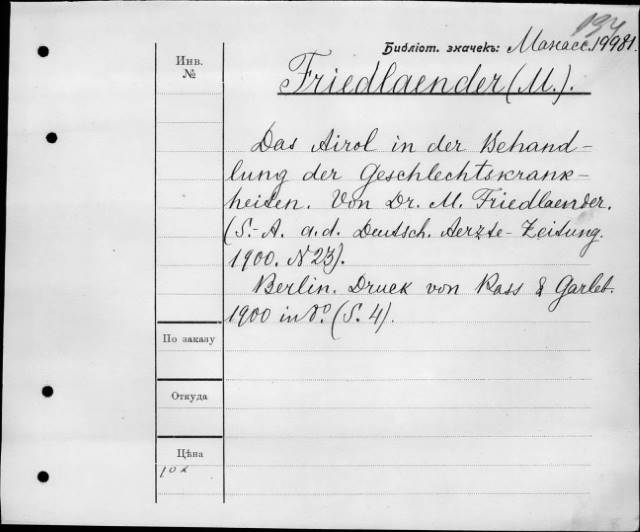 194
Библіот. значекъ: Манасс. 19981.
Инв.
№
Friedlaender (M.).
Das Airol in der Behand-
lung der Geschlechtskrank-
heiten. Von Dr. M. Friedlaender.
(S.-A. a. d. Deutsch. Aerzte-Zeitung.
1900. N 23).
Berlin. Druck von Rass & Garleb.
1900 in 8°. (S. 4).
По заказу
Откуда
Цѣна
10 к